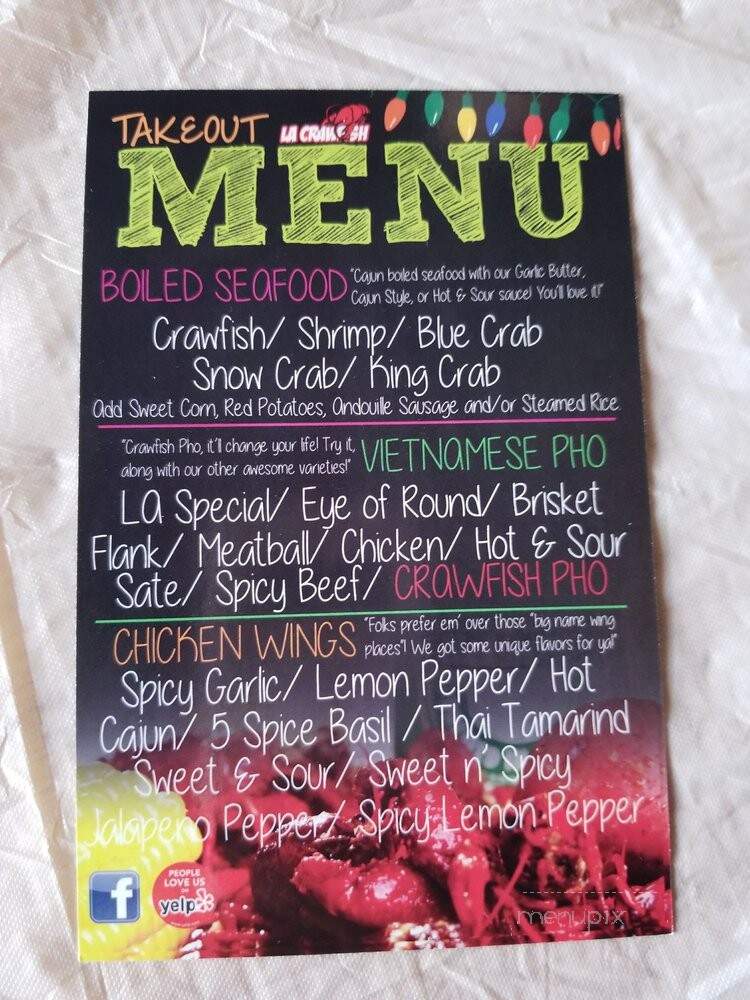 TAKEOUT LA CRAWFISH
MENU
BOILED SEAFOOD "Cajun boiled seafood with our Garlic Butter,
Cajun Style, or Hot & Sour sauce! You'll love it!"
Crawfish/ Shrimp/ Blue Crab
Snow Crab/ King Crab
Add Sweet Corn, Red Potatoes, Andouille Sausage and/or Steamed Rice
"Crawfish Pho, it'll change your life! Try it,
along with our other awesome varieties!" VIETNAMESE PHO
LA Special/ Eye of Round/ Brisket
Flank/ Meatball/ Chicken/ Hot & Sour
Sate/ Spicy Beef/ CRAWFISH PHO
CHICKEN WINGS "Folks prefer em' over those "big name wing
places"! We got some unique flavors for ya!"
Spicy Garlic/ Lemon Pepper/ Hot
Cajun/ 5 Spice Basil / Thai Tamarind
Sweet & Sour/ Sweet n' Spicy
Jalapeno Pepper/ Spicy Lemon Pepper
f
PEOPLE
LOVE US
ON
yelp
menupix